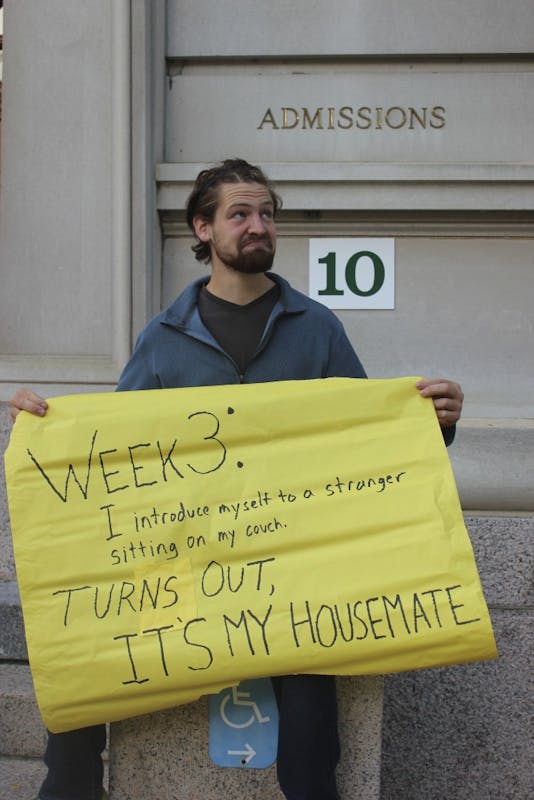 ADMISSIONS
10
WEEK 3:
I introduce myself to a stranger
sitting on my couch.
TURNS OUT,
IT'S MY HOUSEMATE